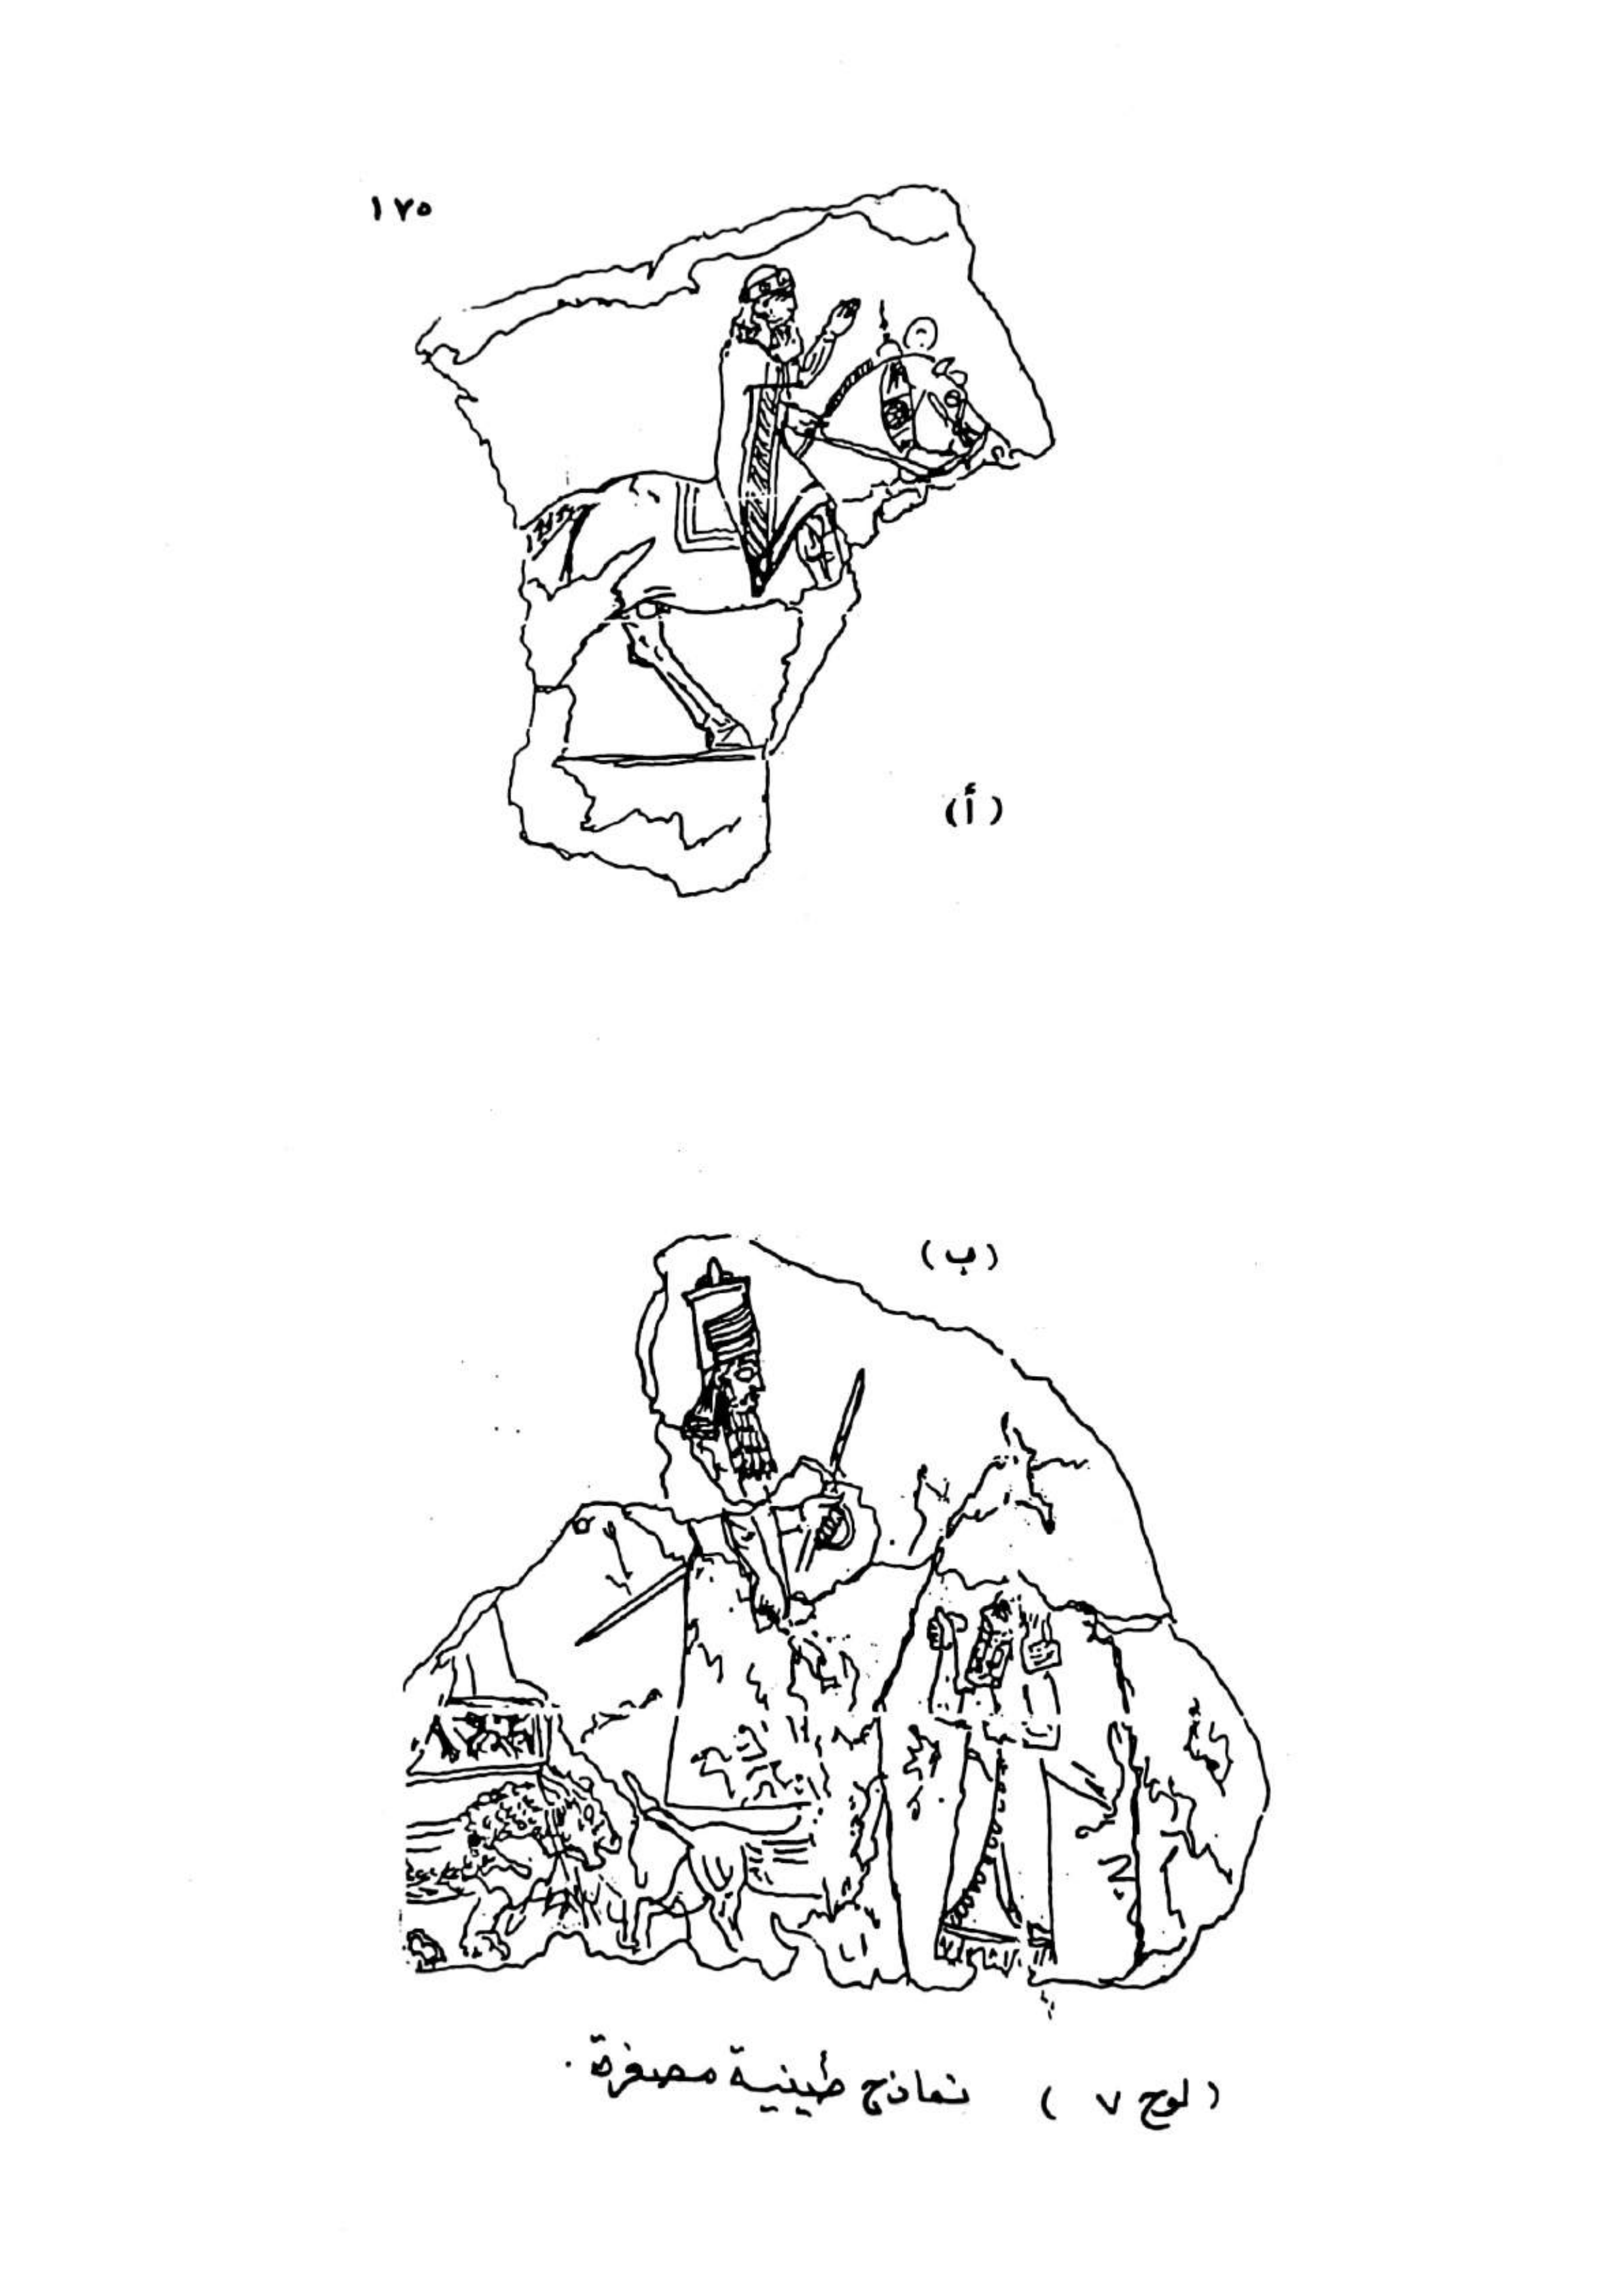 ١٧٥
(أ)
(ب)
(لوح ٧) نماذج طينية مصغرة.